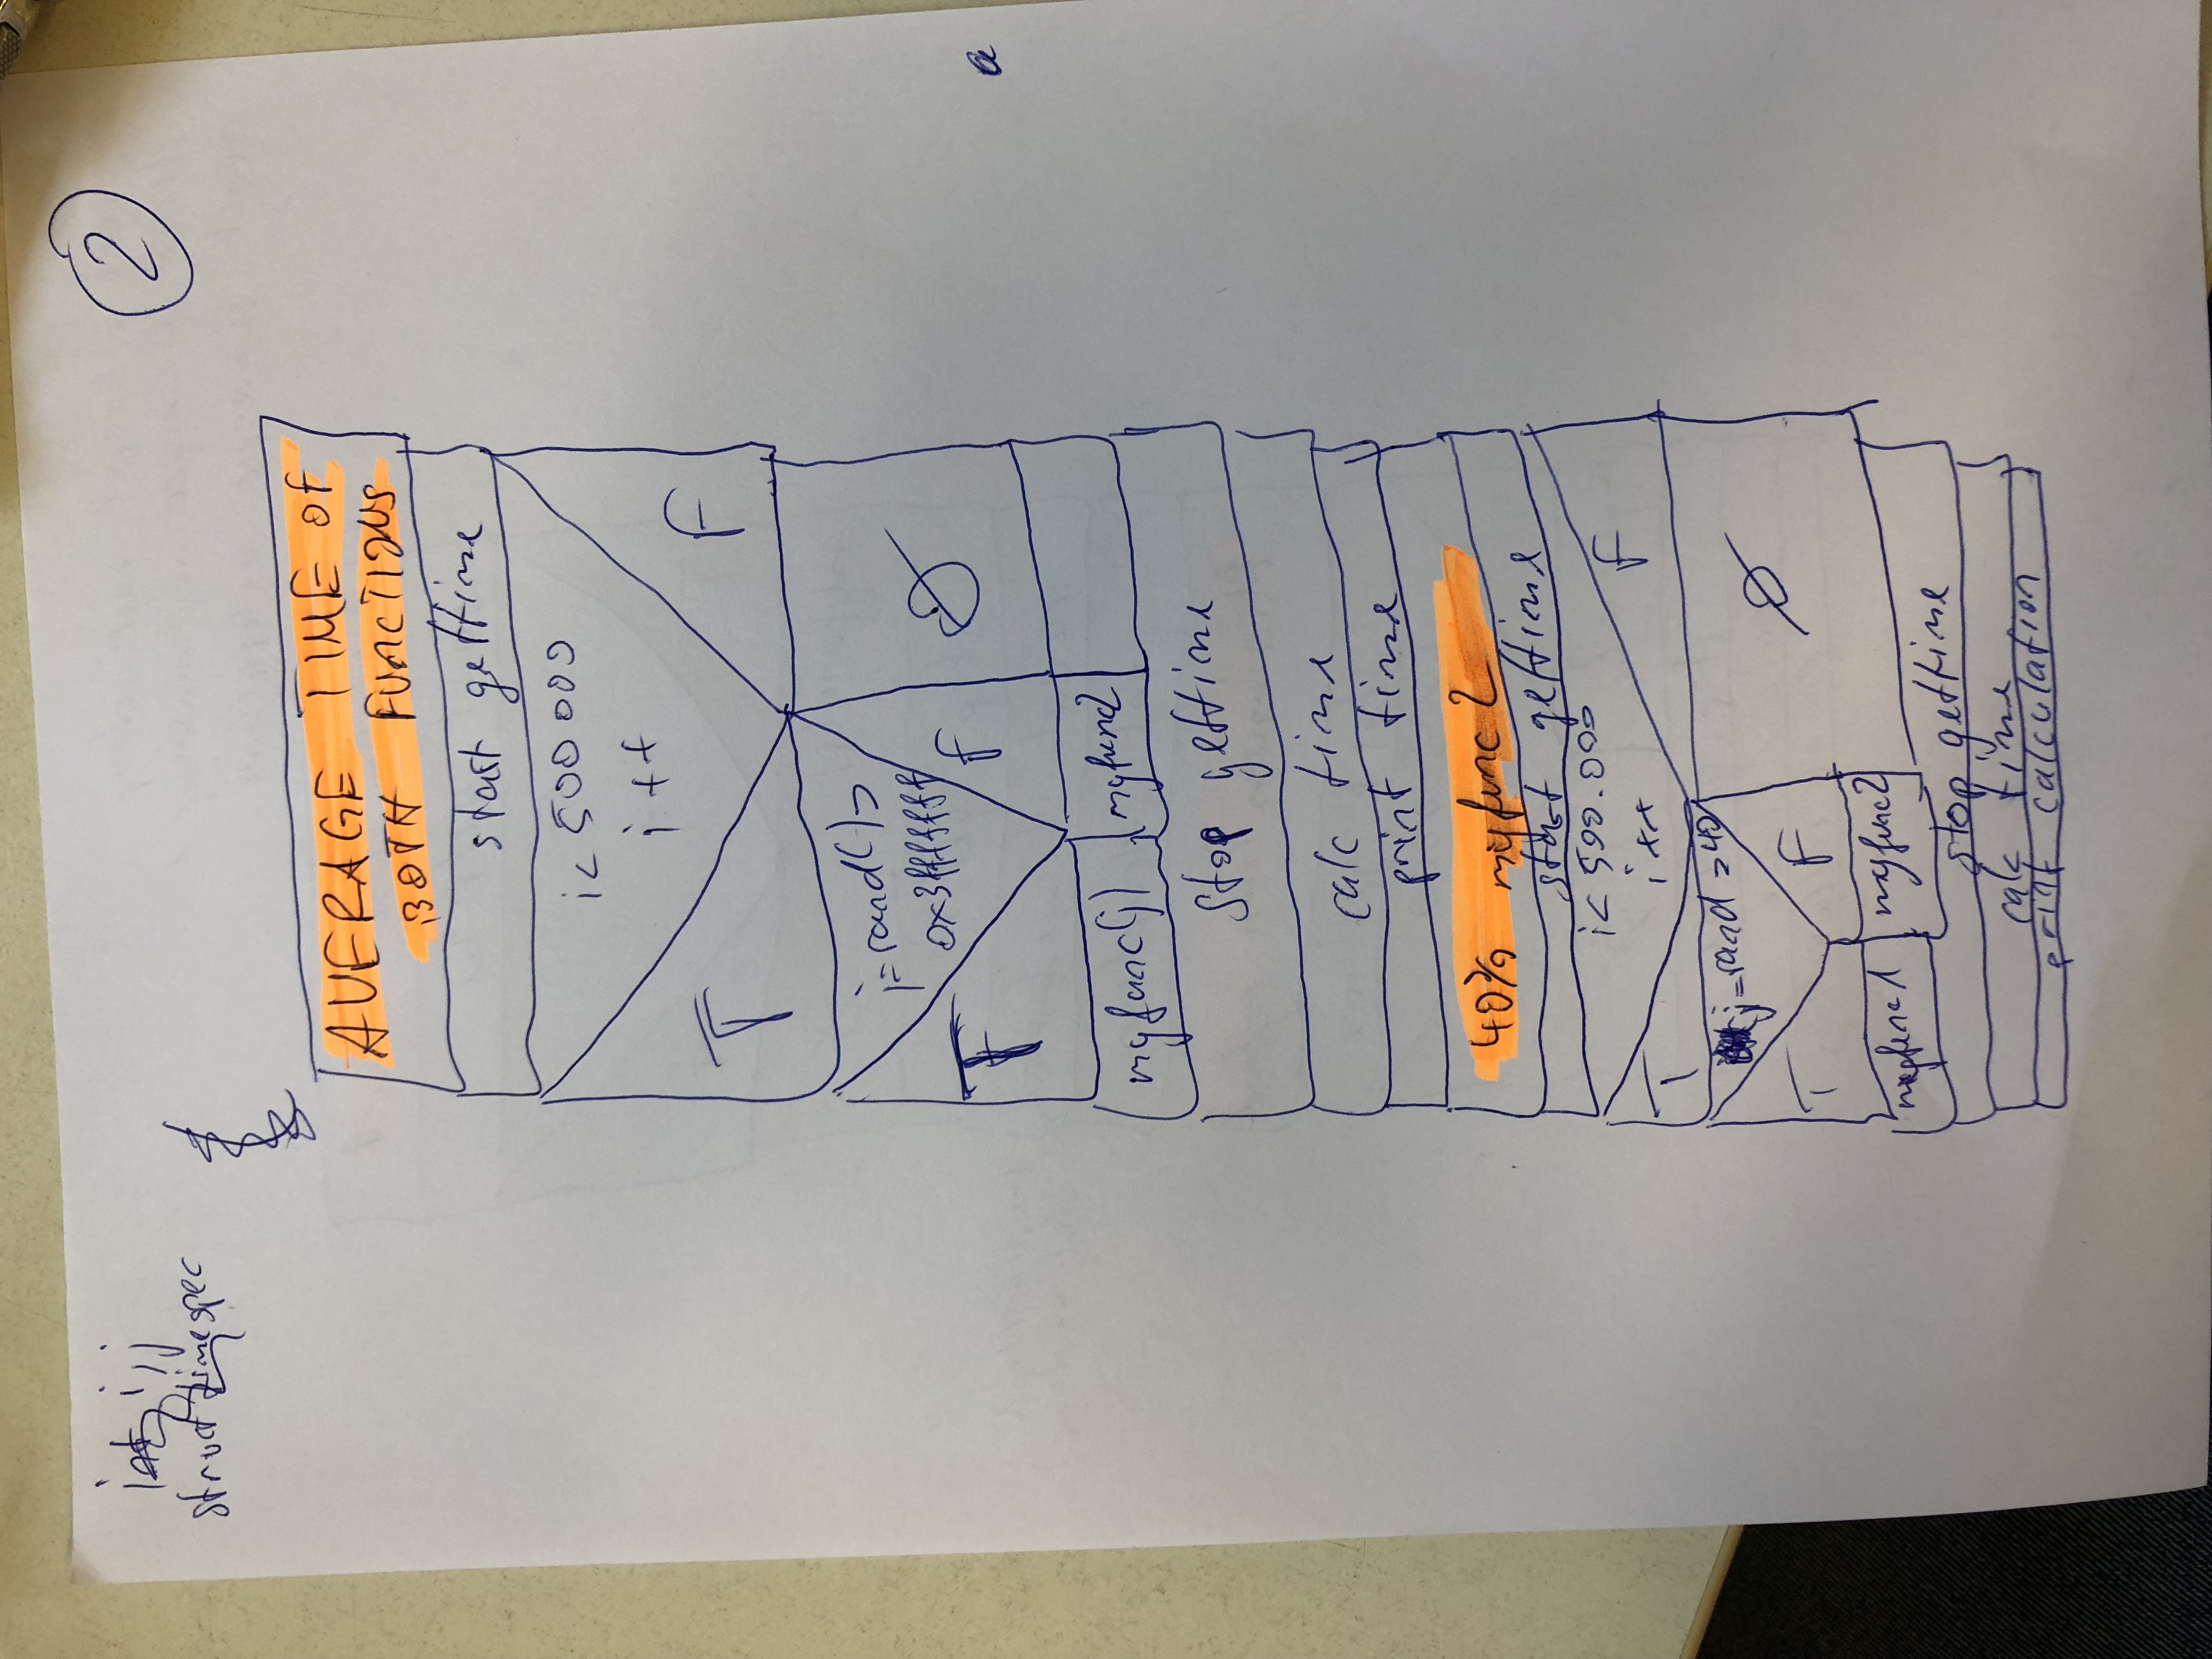 2
int i, j
struct timespec
AVERAGE TIME OF
BOTH FUNCTIONS
start gettime
i < 500 000
i ++
T
F
j=rand()>
0x3fffffff
T
F
Ø
myfunc(j)
myfunc2
stop gettime
calc time
print time
40% myfunc2
start gettime
i < 500.000
i ++
T
F
j=rand >40
T
F
Ø
myfunc1
myfunc2
stop gettime
calc time
print calculation
a